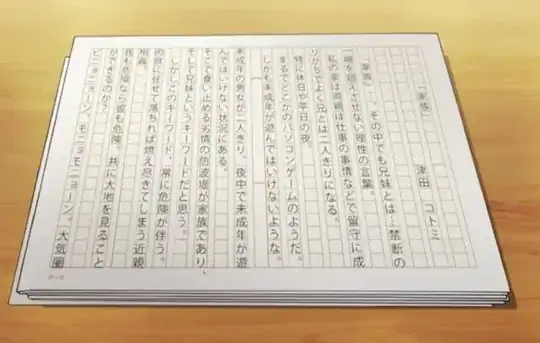 「家族」
津田 コトミ
「家族」、その中でも兄妹とは…禁断の
一線を越えさせない理性の言葉。
私の家は両親は仕事の事情などで留守に成
りがちでよく兄とは二人きりになる。
特に休日や平日の夜。
まるでどこかのパソコンゲームのようだ。
しかも未成年が遊んではいけないような。
未成年の男女が二人きり、夜中で未成年が遊
んではいけない状況にある。
そこで食い止める劣情の防波堤が家族であり、
そして兄妹というキーワードだと思う。
しかしこのキーワード、常に危険が伴う。
肉欲に任せて落ちれば燃え尽きてしまう近親
相姦。
我も危険なら彼も危険。共に大地を見ること
ができるのか?
ピニョニョーン、モニョモニョーン。大気圏